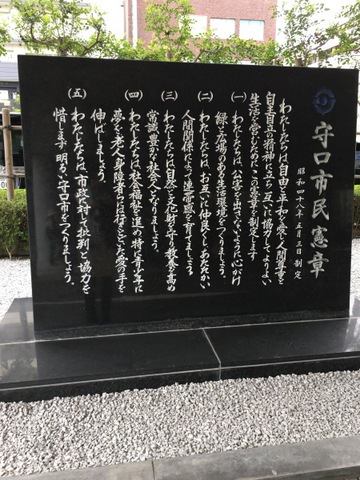 守口市民憲章
昭和四十八年五月三日制定
わたしたちは自由と平和を愛し人間尊重と
自主自立の精神に立ち互いに協力してよりよい
生活を営むためにこの憲章を制定します
(一) わたしたちは、公害を出さないように心がけ
緑と広場のある生活環境をつくりましょう。
(二) わたしたちは、お互いに仲良くしあたたかい
人間関係によって連帯感を育てましょう。
(三) わたしたちは、自然と文化財を守り教養を高め
常識豊かな社会人になりましょう。
(四) わたしたちは、社会福祉を進め特に青少年に
夢を、老人、身障者らには行きとどいた愛の手を
伸ばしましょう。
(五) わたしたちは、市政に対し批判と協力を
惜しまず明るい守口市をつくりましょう。